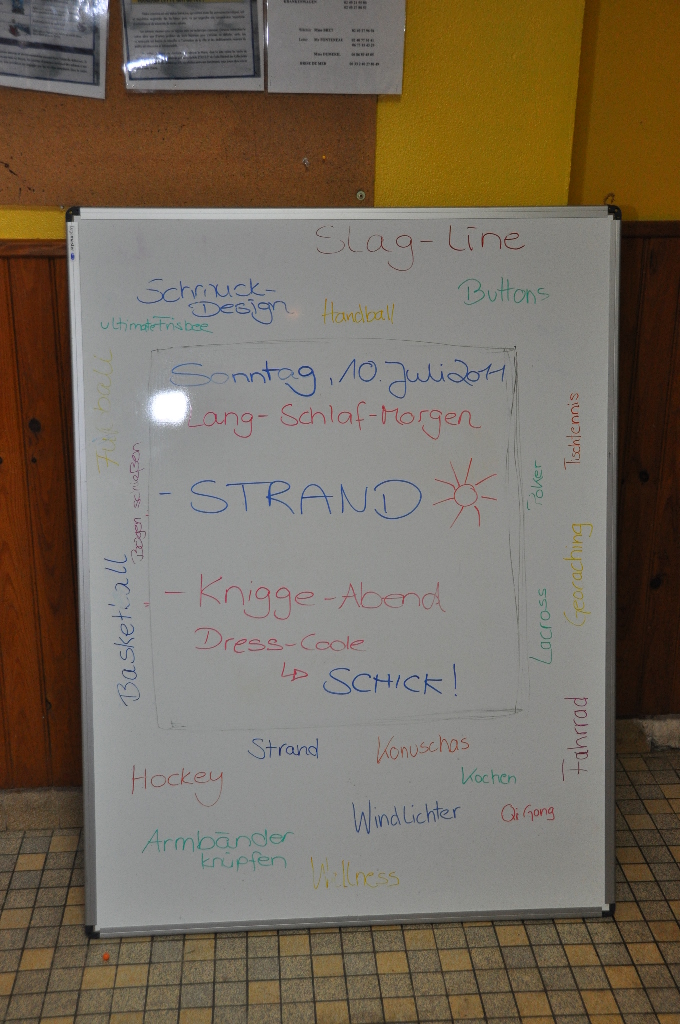 Slag-Line
Schmuck-
Design
Buttons
Handball
ultimate Frisbee
Sonntag, 10. Juli 2011
Lang-Schlaf-Morgen
- STRAND
- Knigge-Abend
Dress-Code
↳ SCHICK!
Bogen schießen
Basketball
Tischlennis
Geocaching
Lacross
Fahrrad
Strand
Konuschas
Hockey
Kochen
Windlichter
Qi Gong
Armbänder
knüpfen
Wellness